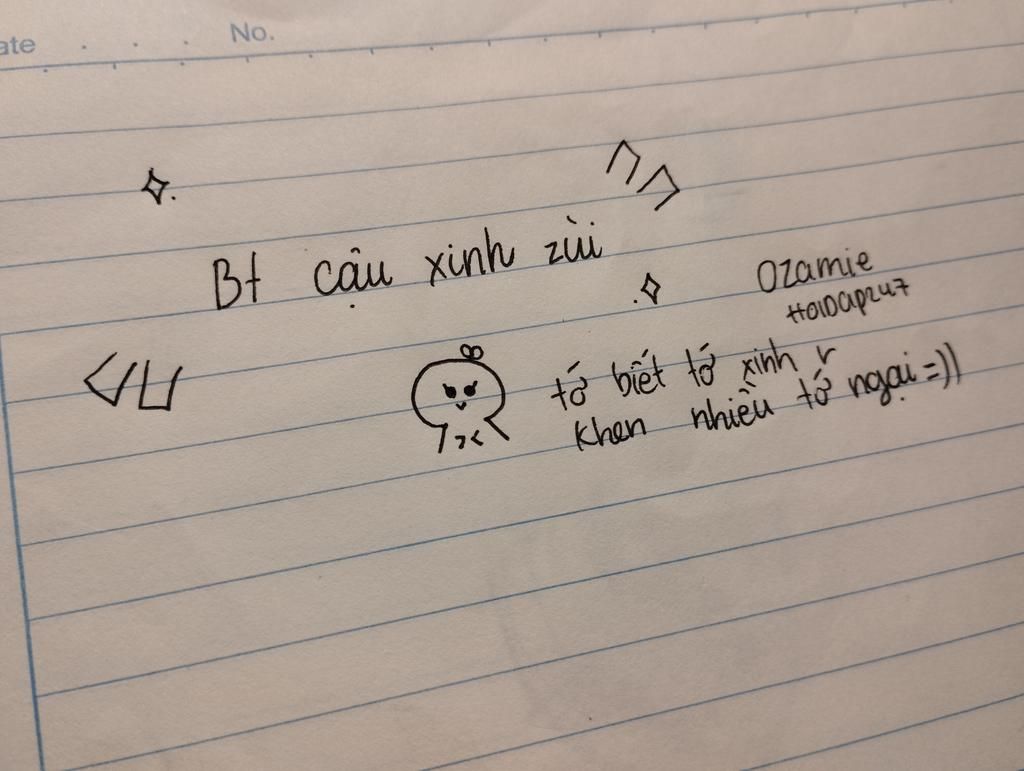 ate
No.
Bt cậu xinh zùi
Ozamie
HOIDAP247
tớ biết tớ xinh r
khen nhiều tớ ngại =))